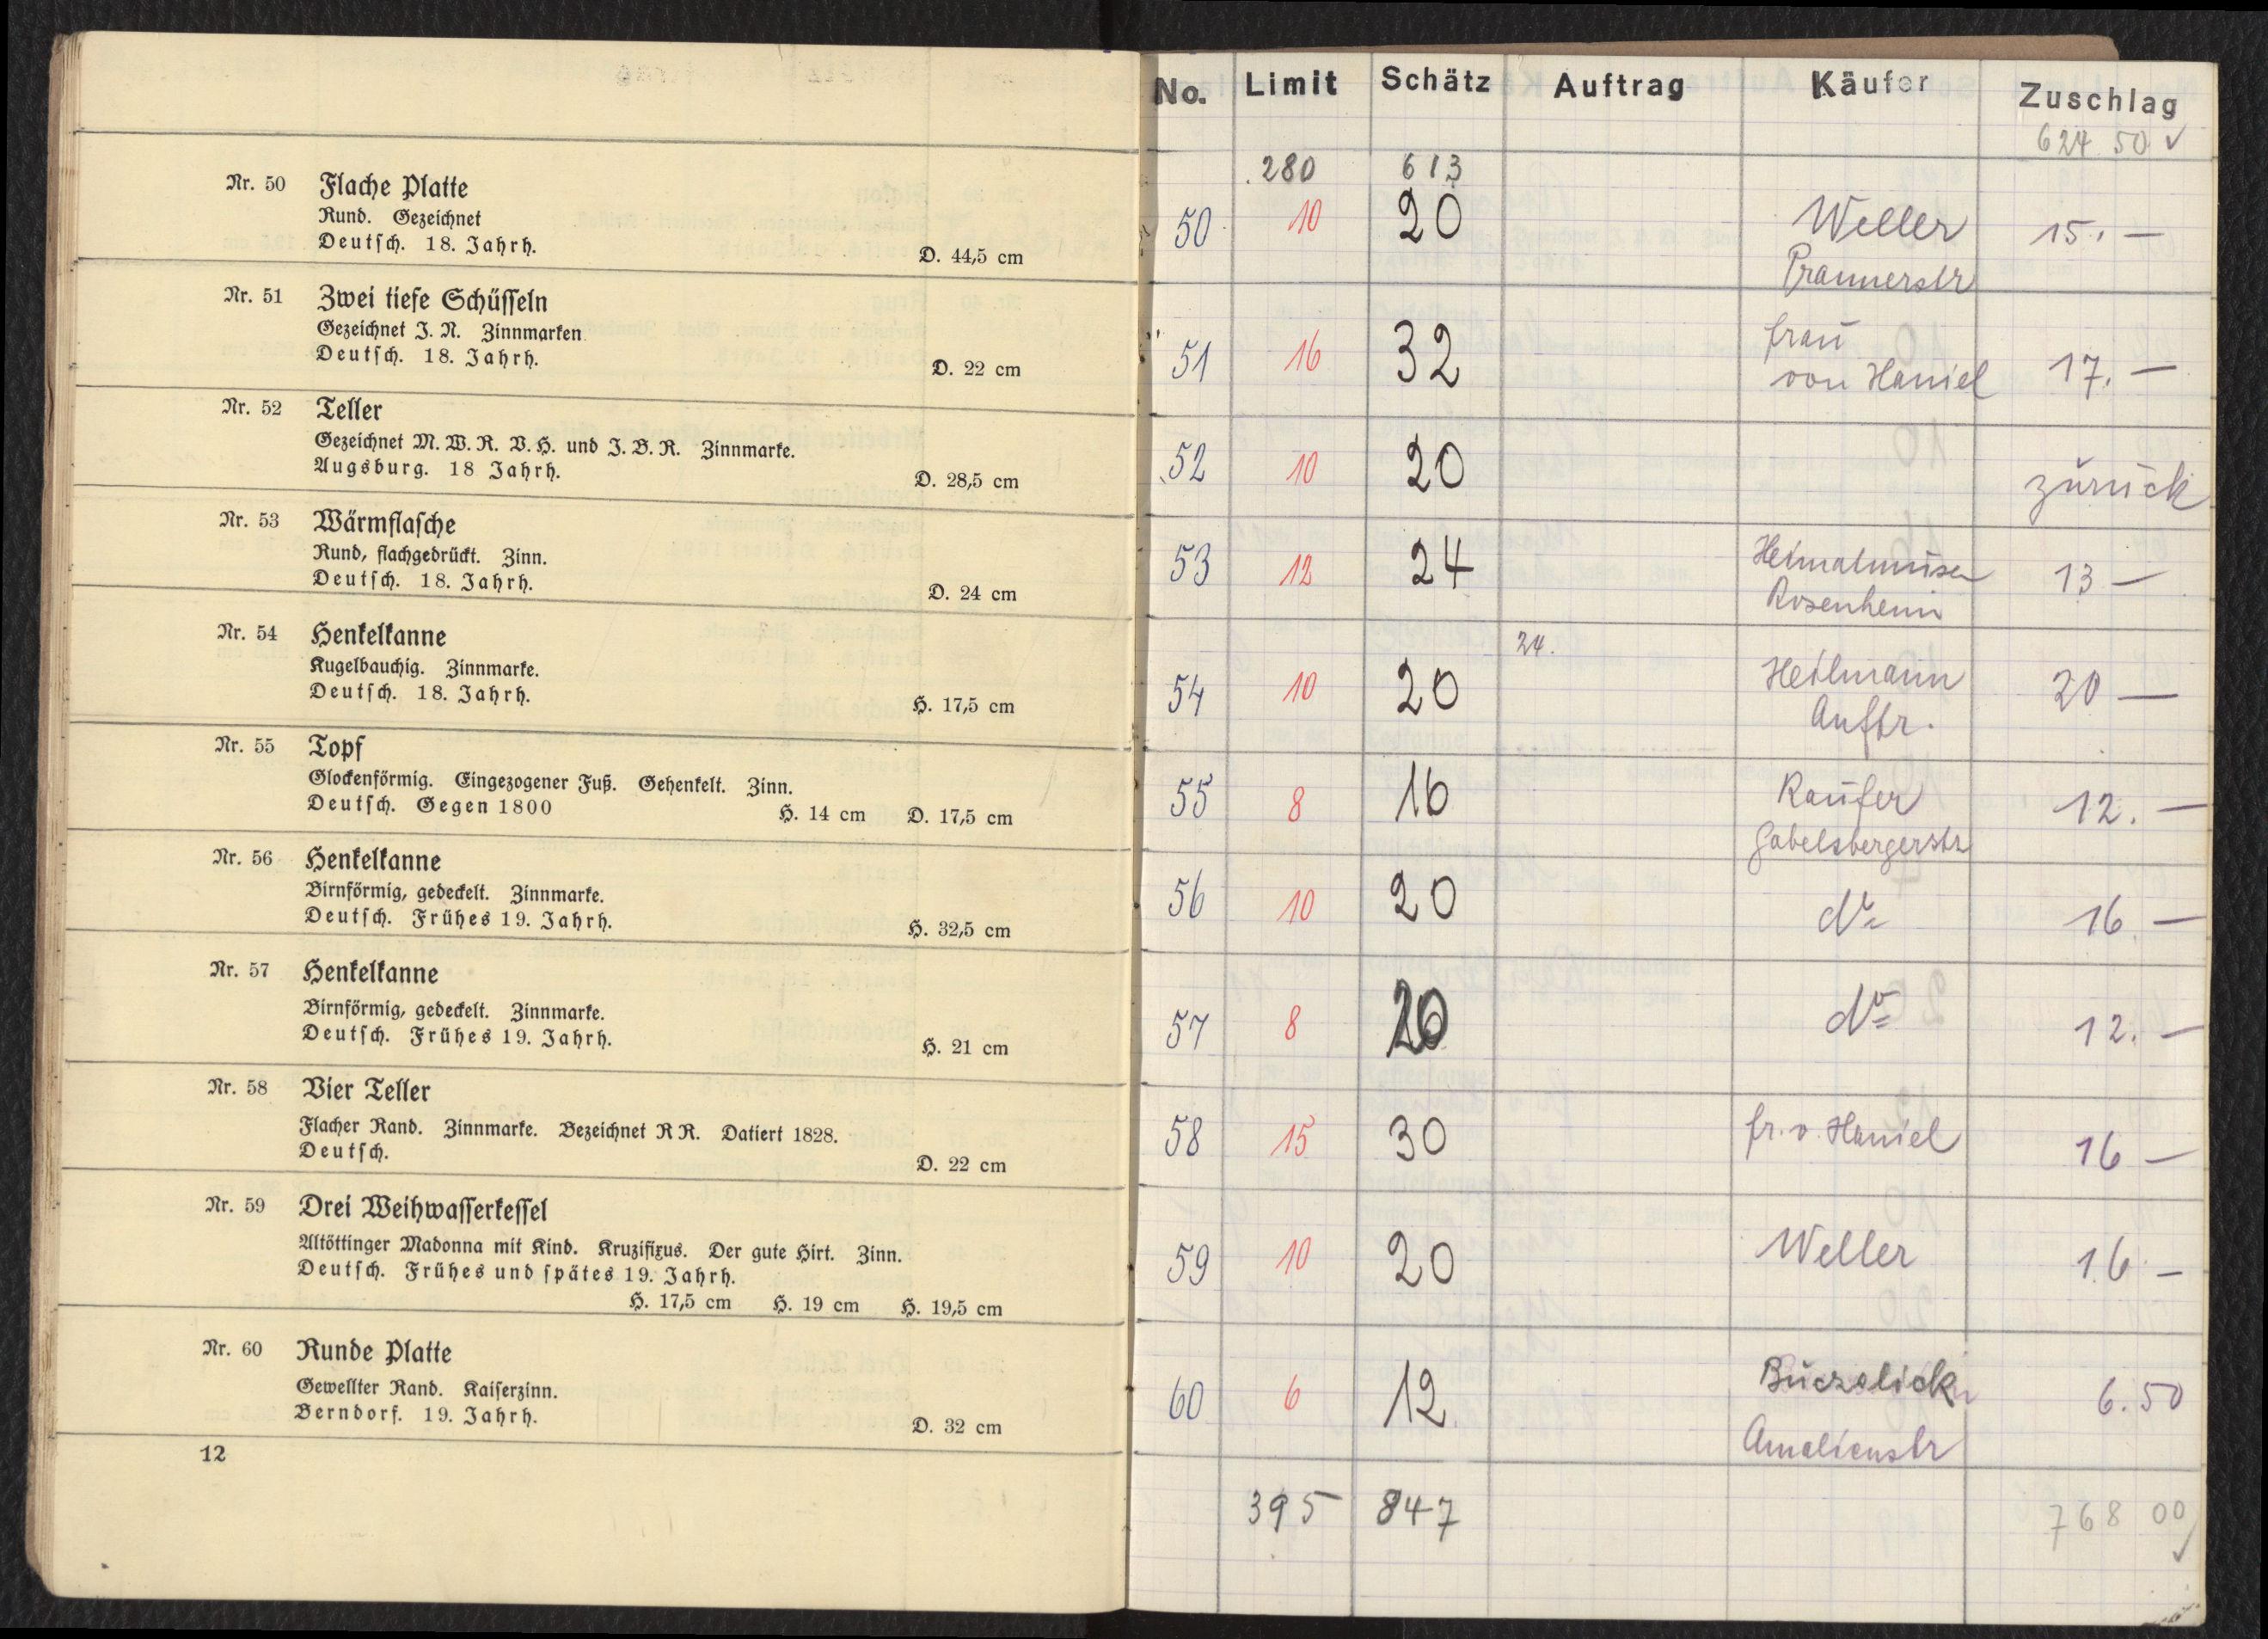 Nr. 50 Flache Platte
Rund. Gezeichnet
Deutsch. 18. Jahrh.
D. 44,5 cm
Nr. 51 Zwei tiefe Schüsseln
Gezeichnet J. N. Zinnmarken
Deutsch. 18. Jahrh.
D. 22 cm
Nr. 52 Teller
Gezeichnet M. W. R. V. H. und J. B. R. Zinnmarke.
Augsburg. 18 Jahrh.
D. 28,5 cm
Nr. 53 Wärmflasche
Rund, flachgedrückt. Zinn.
Deutsch. 18. Jahrh.
D. 24 cm
Nr. 54 Henkelkanne
Kugelbauchig. Zinnmarke.
Deutsch. 18. Jahrh.
H. 17,5 cm
Nr. 55 Topf
Glockenförmig. Eingezogener Fuß. Gehenkelt. Zinn.
Deutsch. Gegen 1800 H. 14 cm D. 17,5 cm
Nr. 56 Henkelkanne
Birnförmig, gedeckelt. Zinnmarke.
Deutsch. Frühes 19. Jahrh.
H. 32,5 cm
Nr. 57 Henkelkanne
Birnförmig, gedeckelt. Zinnmarke.
Deutsch. Frühes 19. Jahrh.
H. 21 cm
Nr. 58 Vier Teller
Flacher Rand. Zinnmarke. Bezeichnet R R. Datiert 1828.
Deutsch.
D. 22 cm
Nr. 59 Drei Weihwasserkessel
Altöttinger Madonna mit Kind. Kruzifixus. Der gute Hirt. Zinn.
Deutsch. Frühes und spätes 19. Jahrh.
H. 17,5 cm H. 19 cm H. 19,5 cm
Nr. 60 Runde Platte
Gewellter Rand. Kaiserzinn.
Berndorf. 19. Jahrh.
D. 32 cm
12
No. Limit Schätz Auftrag Käufer Zuschlag
624 50 ✓
280 613
50 10 20 Weller 15. —
Prannerstr
51 16 32 Frau
von Haniel 17. —
52 10 20 zurück
53 12 24 Heimatmuseum 13 —
Rosenheim
24.
54 10 20 Heilmann 20 —
Auftr.
55 8 16 Kaufer 12. —
Gabelsbergerstr
56 10 20 do 16 —
57 8 20 do 12. —
58 15 30 Fr. v. Haniel 16 —
59 10 20 Weller 16 —
60 6 12 6.50
Amalienstr
395 847 768 00 ✓